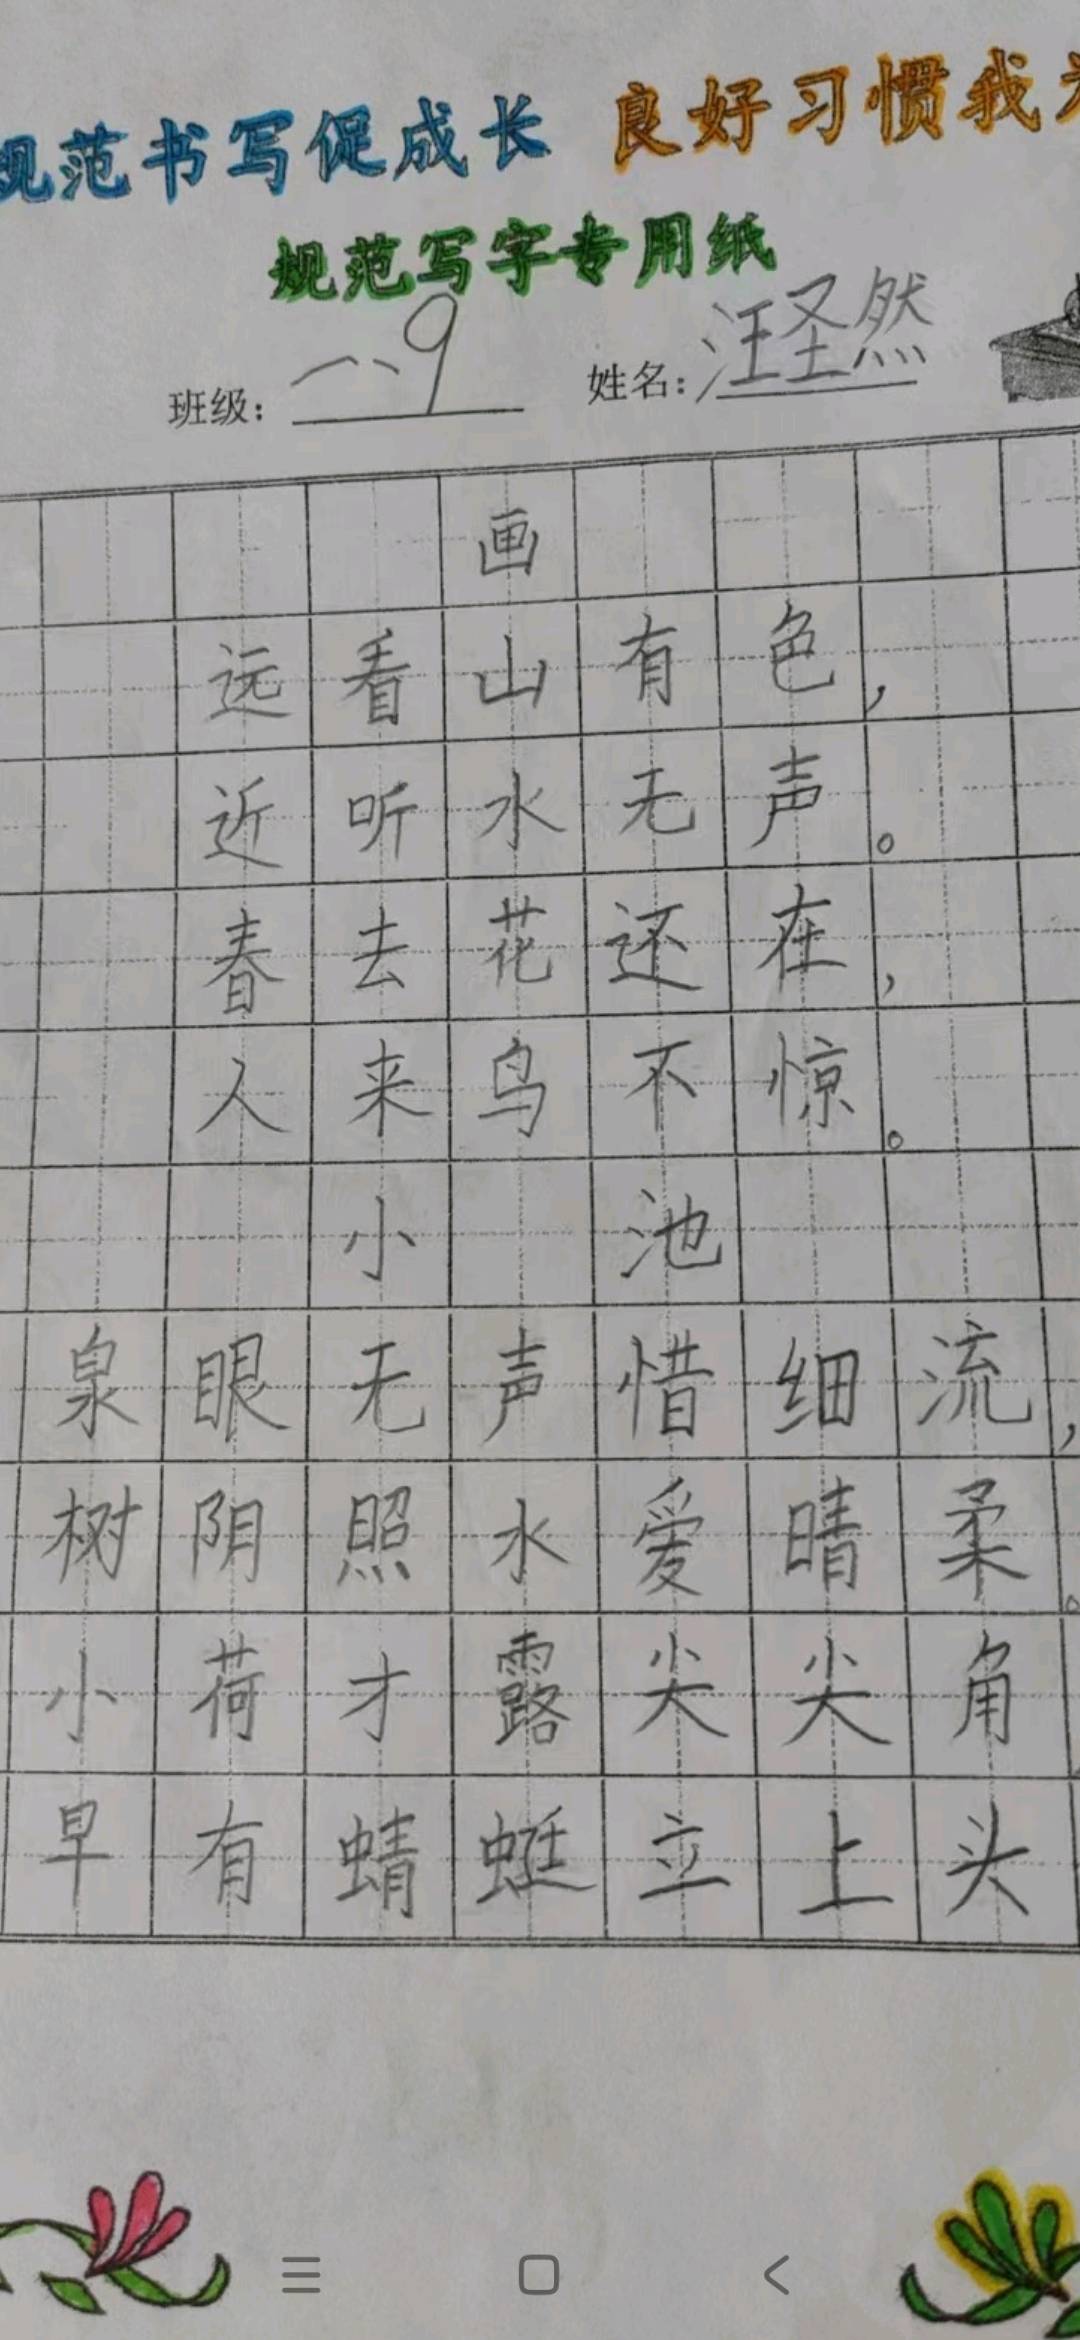 规范书写促成长 良好习惯我
规范写字专用纸
班级: 一、9 姓名: 汪圣然
画
远看山有色,
近听水无声。
春去花还在,
人来鸟不惊。
小池
泉眼无声惜细流,
树阴照水爱晴柔。
小荷才露尖尖角
早有蜻蜓立上头